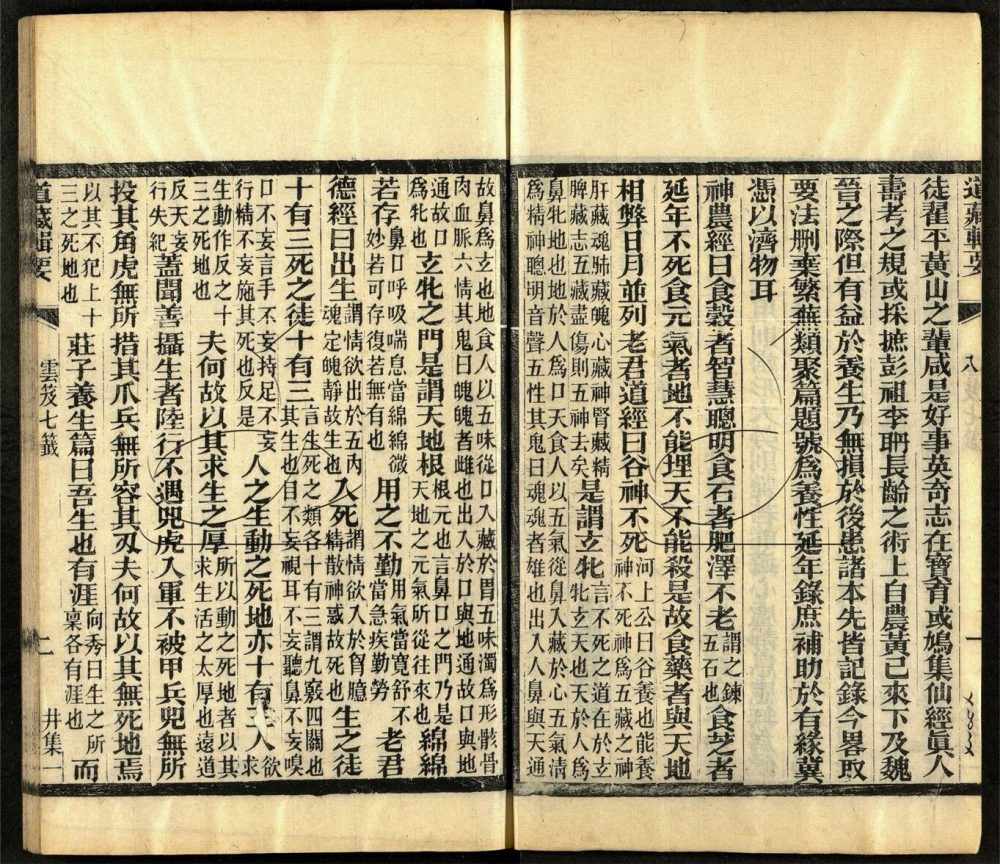 道藏輯要 八 一
徒翟平黃山之輩咸是好事英奇志在寶育或鳩集仙經眞人
壽考之規或採摭彭祖李耼長齡之術上自農黃已來下及魏
晉之際但有益於養生乃無損於後患諸本先皆記錄今畧取
要法刪棄繁蕪類聚篇題號爲養性延年錄庶補助於有緣冀
憑以濟物耳
神農經曰食穀者智慧聰明食石者肥澤不老謂之鍊五石也食芝者
延年不死食元氣者地不能埋天不能殺是故食藥者與天地
相弊日月並列老君道經曰谷神不死河上公曰谷養也能養神不死神爲五藏之神
肝藏魂肺藏魄心藏神腎藏精脾藏志五藏盡傷則五神去矣是謂玄牝言不死之道在於玄牝玄天也天於人爲
鼻牝地也於人爲口天食人以五氣從鼻入藏於心五氣淸爲精神聰明音聲五性其鬼曰魂魂者雄也出入人鼻與天通
故鼻爲玄也地食人以五味從口入藏於胃五味濁爲形骸骨肉血脈六情其鬼曰魄魄者雌也出入於口與地通故口與地
通故口爲牝也玄牝之門是謂天地根根元也言鼻口之門乃是天地之元氣所從往來也綿綿
若存鼻口呼吸喘息當綿綿微妙若可存復若無有也用之不勤用氣當寬舒不當急疾勤勞老君
德經曰出生謂情欲出於五內魂定魄靜故生也入死謂情欲入於胷臆精散神惑故死也生之徒
十有三死之徒十有三言生死之類各十有三謂九竅四關也其生也目不妄視耳不妄聽鼻不妄嗅
口不妄言手不妄持足不妄行精不妄施其死也反是人之生動之死地亦十有三人欲求
生動作反之十三之死地也夫何故以其求生之厚所以動之死地者以其求生活之太厚也遠道
反天妄行失紀蓋聞善攝生者陸行不遇兕虎入軍不被甲兵兕無所
投其角虎無所措其爪兵無所容其刃夫何故以其無死地焉
以其不犯上十三之死地也莊子養生篇曰吾生也有涯向秀曰生之所稟各有涯也而
道藏輯要 雲笈七籤 七 井集一